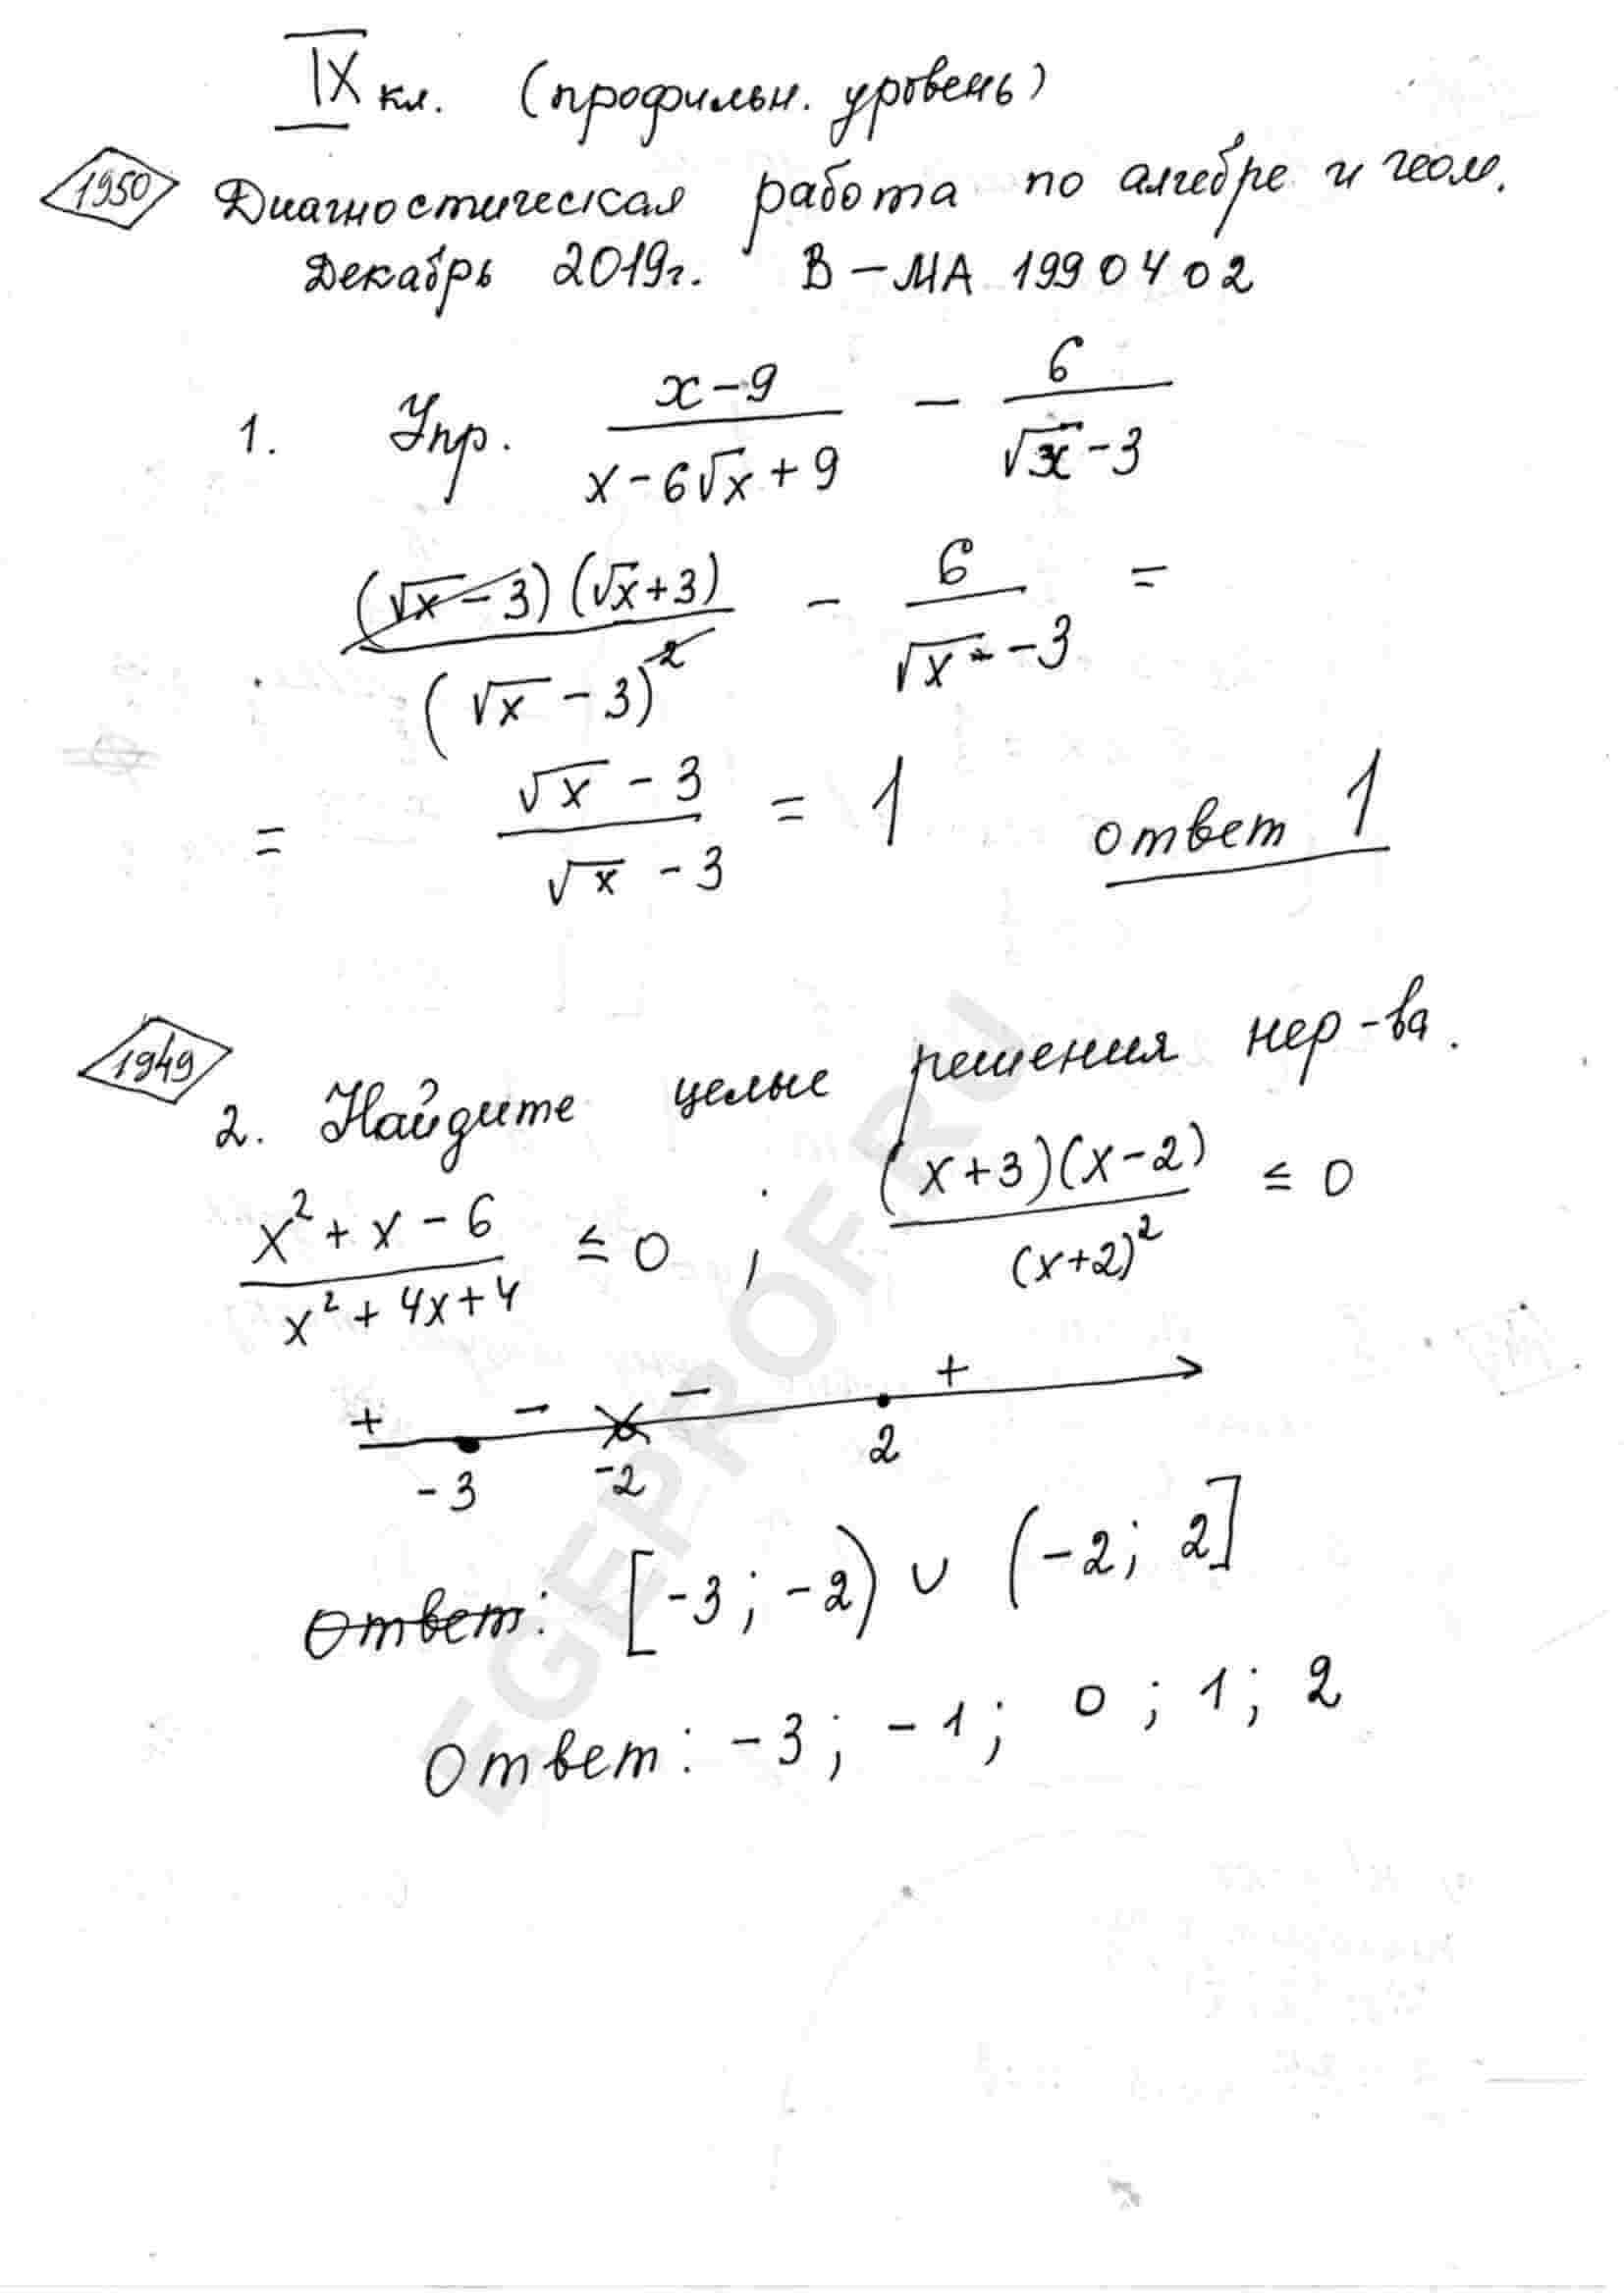 IX кл. (профильн. уровень)
1950 Диагностическая работа по алгебре и геом.
Декабрь 2019г. В – МА 1990402
1. Упр. (x-9)/(x-6√x+9) - 6/(√x-3)
((√x-3)(√x+3))/(√x-3)² - 6/(√x-3) =
= (√x-3)/(√x-3) = 1 ответ 1
1949
2. Найдите целые решения нер-ва.
(x²+x-6)/(x²+4x+4) ≤ 0 ; ((x+3)(x-2))/(x+2)² ≤ 0
+ - - +
-3 -2 2
Ответ: [-3; -2) ∪ (-2; 2]
Ответ: -3; -1; 0; 1; 2
EGEPROF.RU